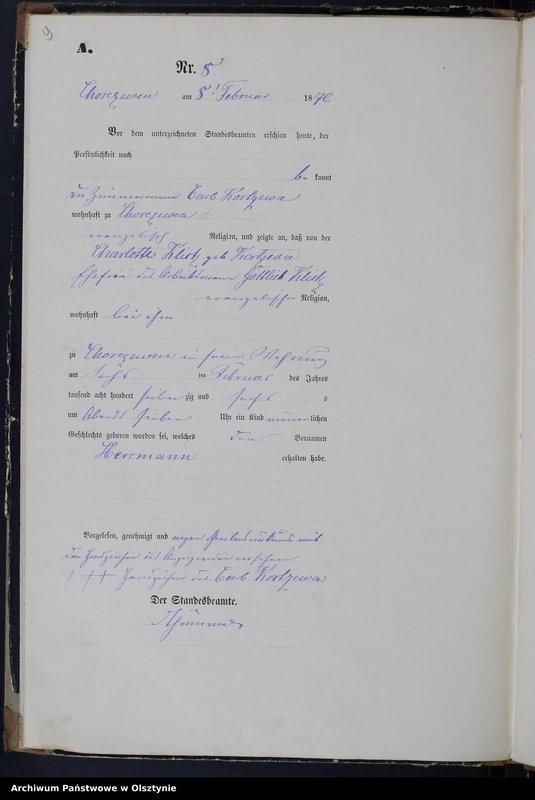 9
A.
Nr. 8
Chorczewen am 8t Februar 1876
Vor dem unterzeichneten Standesbeamten erschien heute, der
Persönlichkeit nach
be kannt
der Zimmermann Carl Kortzewa
wohnhaft zu Chorczewen
evangelisch Religion, und zeigte an, daß von der
Charlotte Klisty geb Kortzewa
Ehefrau des Gottlieb Klisty
evangelischer Religion,
wohnhaft bei ihm
zu Chorczewen in seiner Wohnung
am sechs ten Februar des Jahres
tausend acht hundert sieben zig und sechs s
um Abends sieben Uhr ein Kind männlichen
Geschlechts geboren worden sei, welches den Vornamen
Herrmann erhalten habe.
Vorgelesen, genehmigt und wegen mit
dem Handzeichen des Anzeigenden versehen
+ + + Handzeichen des Carl Kortzewa
Der Standesbeamte.
Archiwum Państwowe w Olsztynie